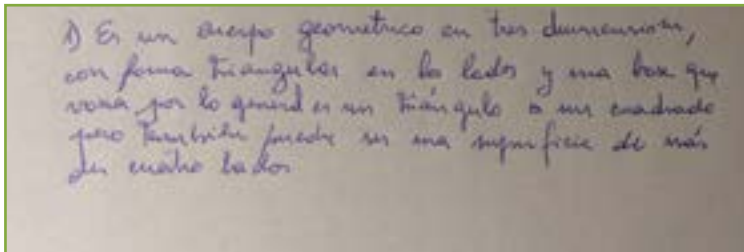 1) Es un cuerpo geometrico en tres dimensiones,
con forma triangular en los lados y una base que
varia por lo general es un triángulo o un cuadrado
pero también puede ser una superficie de más
de cuatro lados